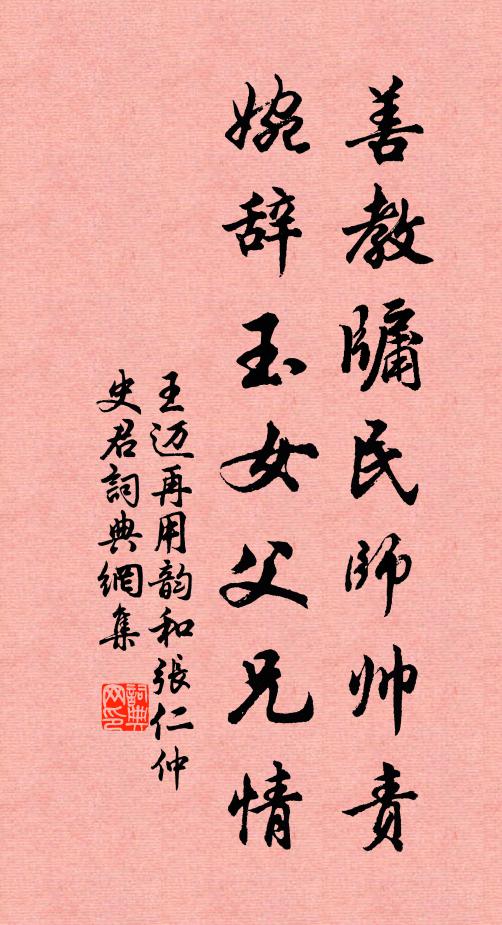 善教牖民师帅责
婉辞玉女父兄情
王迈再用韵和張仁仲
史君詞典網集
詞典网印